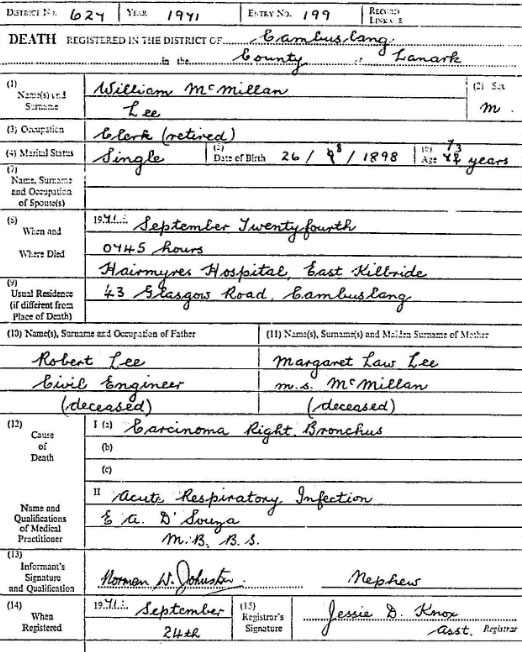 DISTRICT No. 627 YEAR 1971 ENTRY No. 199 RECORD
DEATH REGISTERED IN THE DISTRICT OF Cambuslang
in the County of Lanark
(1) Name(s) and Surname William McMillan (2) Sex
Lee M.
(3) Occupation Clerk (retired)
(4) Marital Status Single (5) Date of Birth 26 / 8 / 1898 (6) Age 73 years
(7)
Name, Surname
and Occupation
of Spouse(s)
(8) 1971 September Twentyfourth
When and 0745 hours
Where Died Hairmyres Hospital, East Kilbride
(9)
Usual Residence 43 Glasgow Road, Cambuslang
(if different from
Place of Death)
(10) Name(s), Surname and Occupation of Father (11) Name(s), Surname(s) and Maiden Surname of Mother
Robert Lee Margaret Law Lee
Civil Engineer m.s. McMillan
(deceased) (deceased)
(12) I (a) Carcinoma Right Bronchus
Cause (b)
of
Death (c)
II Acute Respiratory Infection
Name and
Qualifications E A. D'Souza
of Medical
Practitioner M.B. B.S.
(13)
Informant's
Signature Norman W. Johnston Nephew
and Qualification
(14) 1971 September (15) Jessie D. Knox
When Registrar's
Registered 24th Signature Asst. Registrar